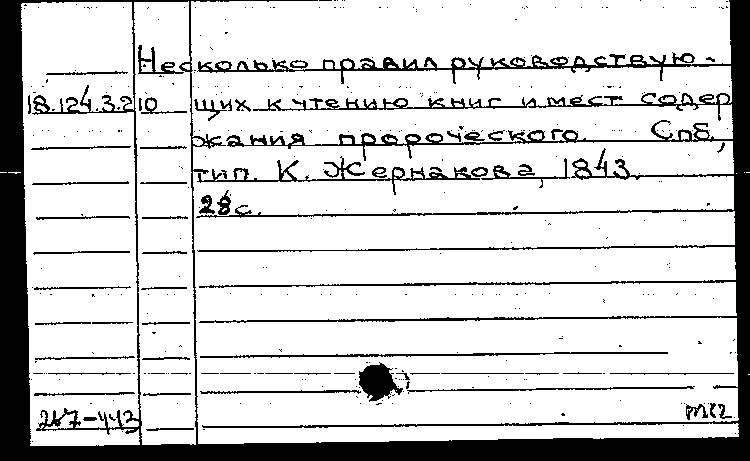 Несколько правил руководствую-
18.124.3.210 щих к чтению книг и мест содер
жания пророческого. Спб.,
тип. К. Жернакова, 1843.
28 с.
267-443